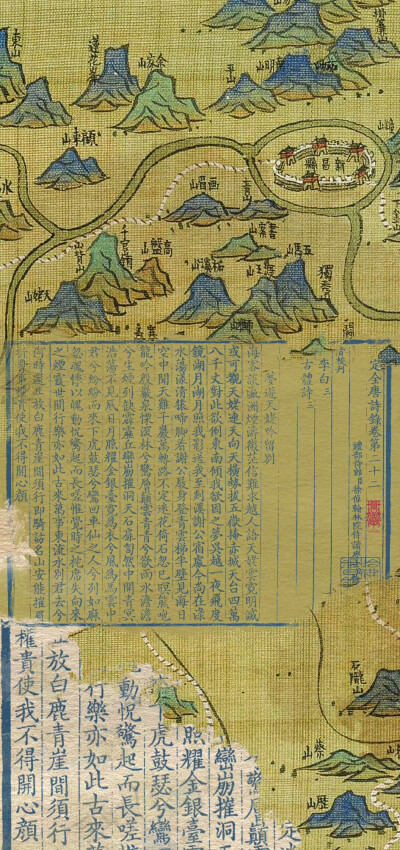 東山
蓮花峯
余家山
南明山
平山
新昌縣
顧東山
畫眉山
千官嶺
高盤山
書案山
五馬山
獨秀
天姥山
定全唐詩錄卷第二十二
李白三
古體詩三
夢遊天姥吟留別
海客談瀛洲煙濤微茫信難求越人語天姥雲霓明滅
或可觀天姥連天向天橫勢拔五嶽掩赤城天台四萬
八千丈對此欲倒東南傾我欲因之夢吳越一夜飛度
鏡湖月湖月照我影送我至剡溪謝公宿處今尚在淥
水蕩漾清猿啼脚著謝公屐身登青雲梯半壁見海日
空中聞天雞千巖萬轉路不定迷花倚石忽已暝熊咆
龍吟殷巖泉慄深林兮驚層巔雲青青兮欲雨水澹澹
兮生煙列缺霹靂丘巒崩摧洞天石扇訇然中開青冥
浩蕩不見底日月照耀金銀臺霓為衣兮風為馬雲中
君兮紛紛而來下虎鼓瑟兮鸞回車仙之人兮列如麻
忽魂悸以魄動怳驚起而長嗟惟覺時之枕席失向來
之煙霞世間行樂亦如此古來萬事東流水別君去兮
何時還且放白鹿青崖間須行即騎訪名山安能摧眉
權貴使我不得開心顏
石隴山
柴山
歷山
巒崩摧洞
照耀金銀臺
虎鼓瑟兮鸞
動怳驚起而長嗟惟
行樂亦如此古來萬
放白鹿青崖間須行
權貴使我不得開心顏